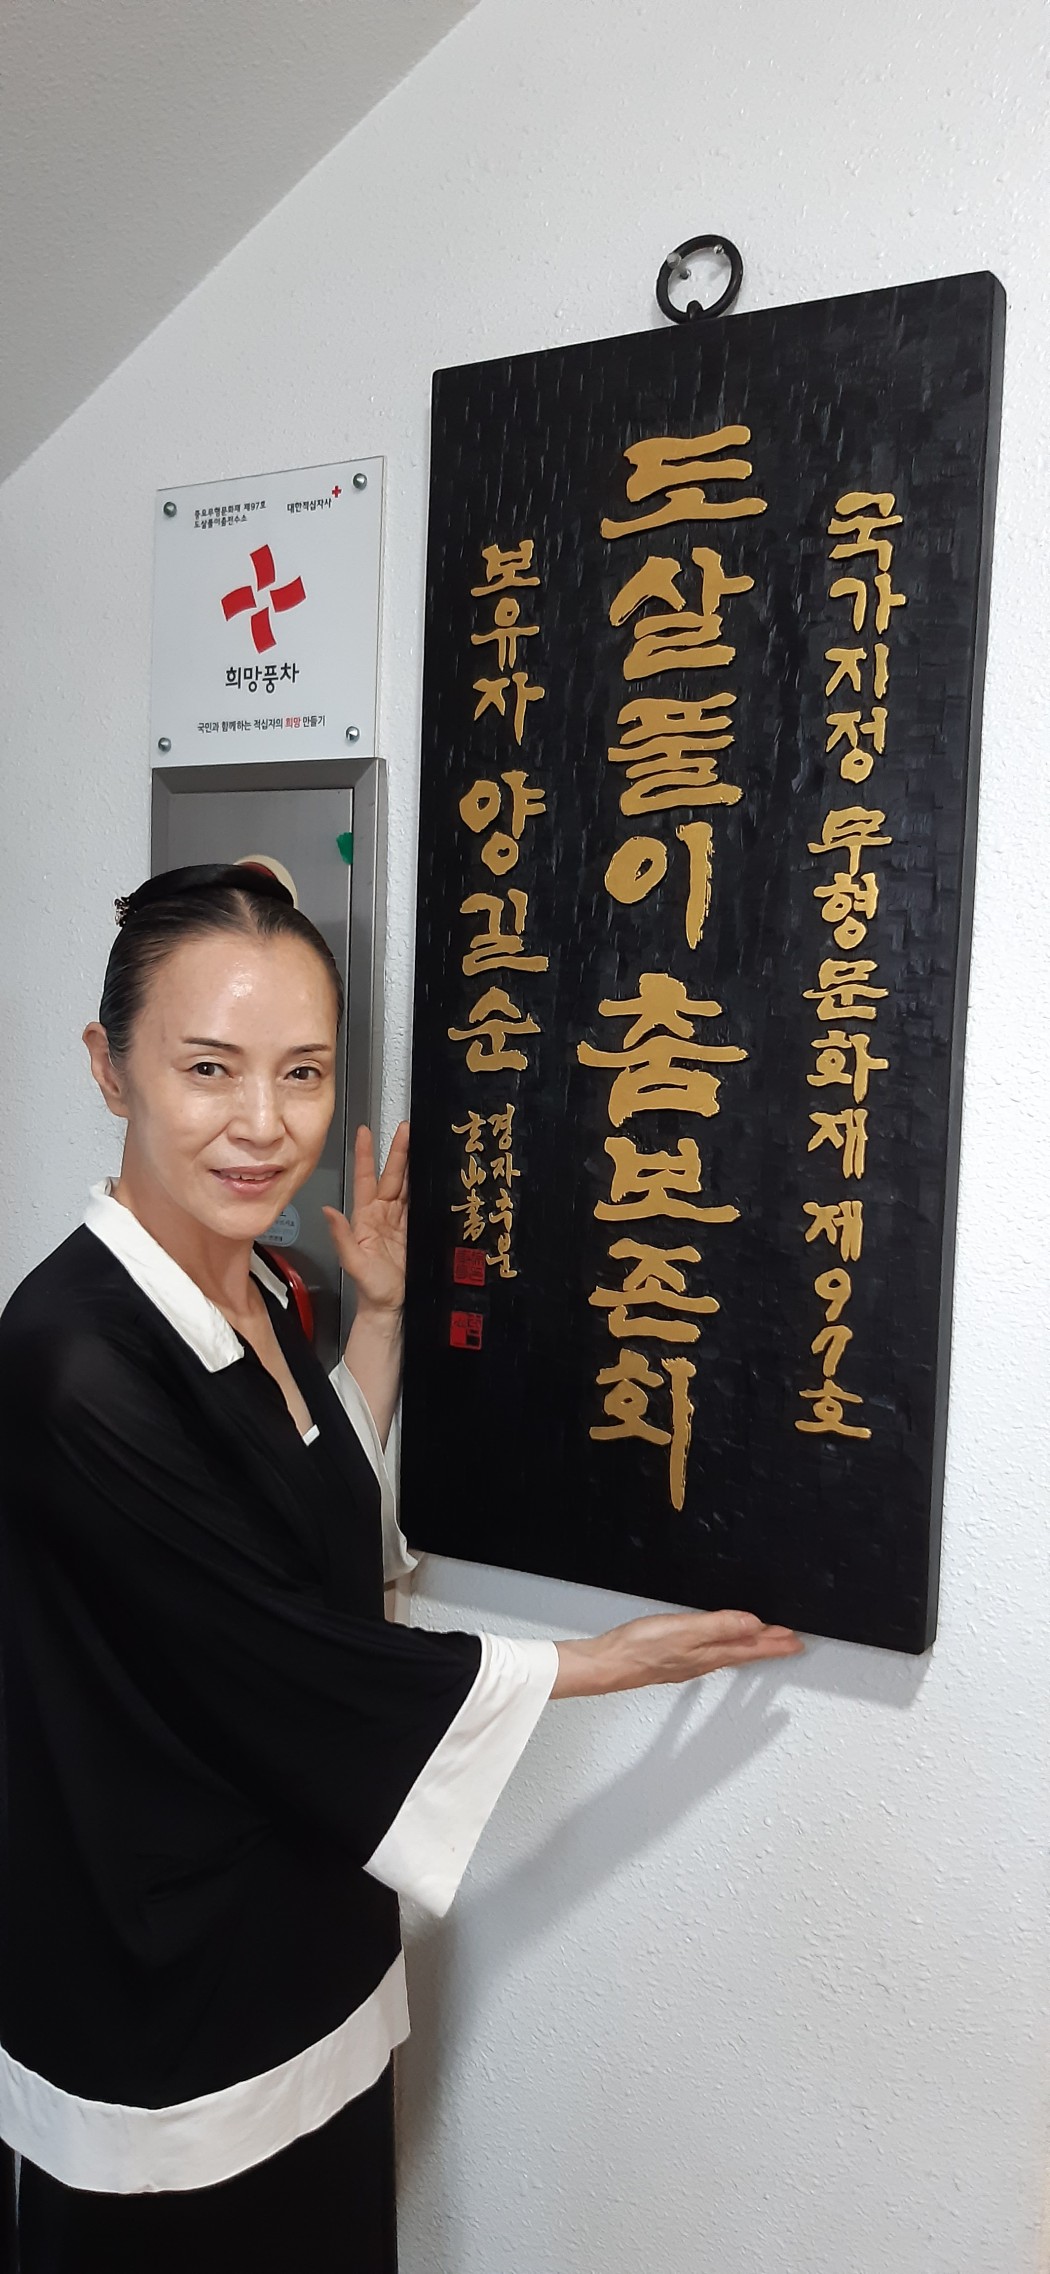 중요무형문화재 제97호
도살풀이춤전수소
대한적십자사
희망풍차
국민과 함께하는 적십자의 희망 만들기
국가지정 무형문화재 제97호
도살풀이춤보존회
보유자 양길순
경자추온
玄山書